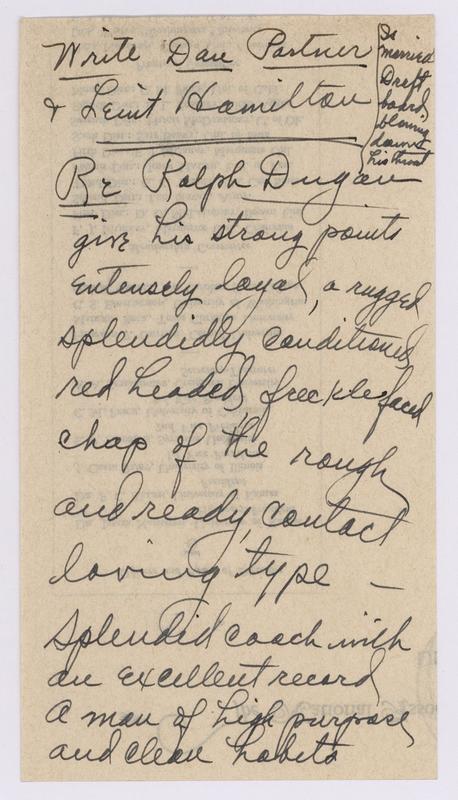 Write Dan Partner
& Leiut Hamilton
Is
married
Draft
board
blowing
down
his throat
Re Ralph Dugan
give his strong points
entensely loyal, a rugged
splendidly conditioned,
red headed, freckle faced
chap of the rough
and ready, contact
loving type —
Splendid coach with
an excellent record
A man of high purpose
and clean habits